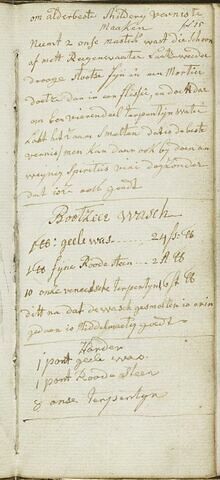 om alderbeste Schildery vernis te
Maaken
Neemt 2 onse mastik wast die schoon
af mett Reegenwaater Laat weeder
drooge Stoot se fyn in een Mortier
doet dan in een flesse, en doet daar
om een vierendel terpentyn water
Laat het saam smolten dat is de beste
vernis, men kan daar ook by doen an
weynig Spiritus
dat is ook goedt
Bootkeer wasch
1 ℔: geele was 24 st: ℔
1 ℔ fyne Roode steen 2 st ℔
10 onse veneetsche Terpentyn 16 st ℔
ditt na dat de wasch gesmolten is er in
gedaan is Middelmatig goedt
Harder
1 pont geele was.
1 pont Roode Steen
8 onse Terpentyn